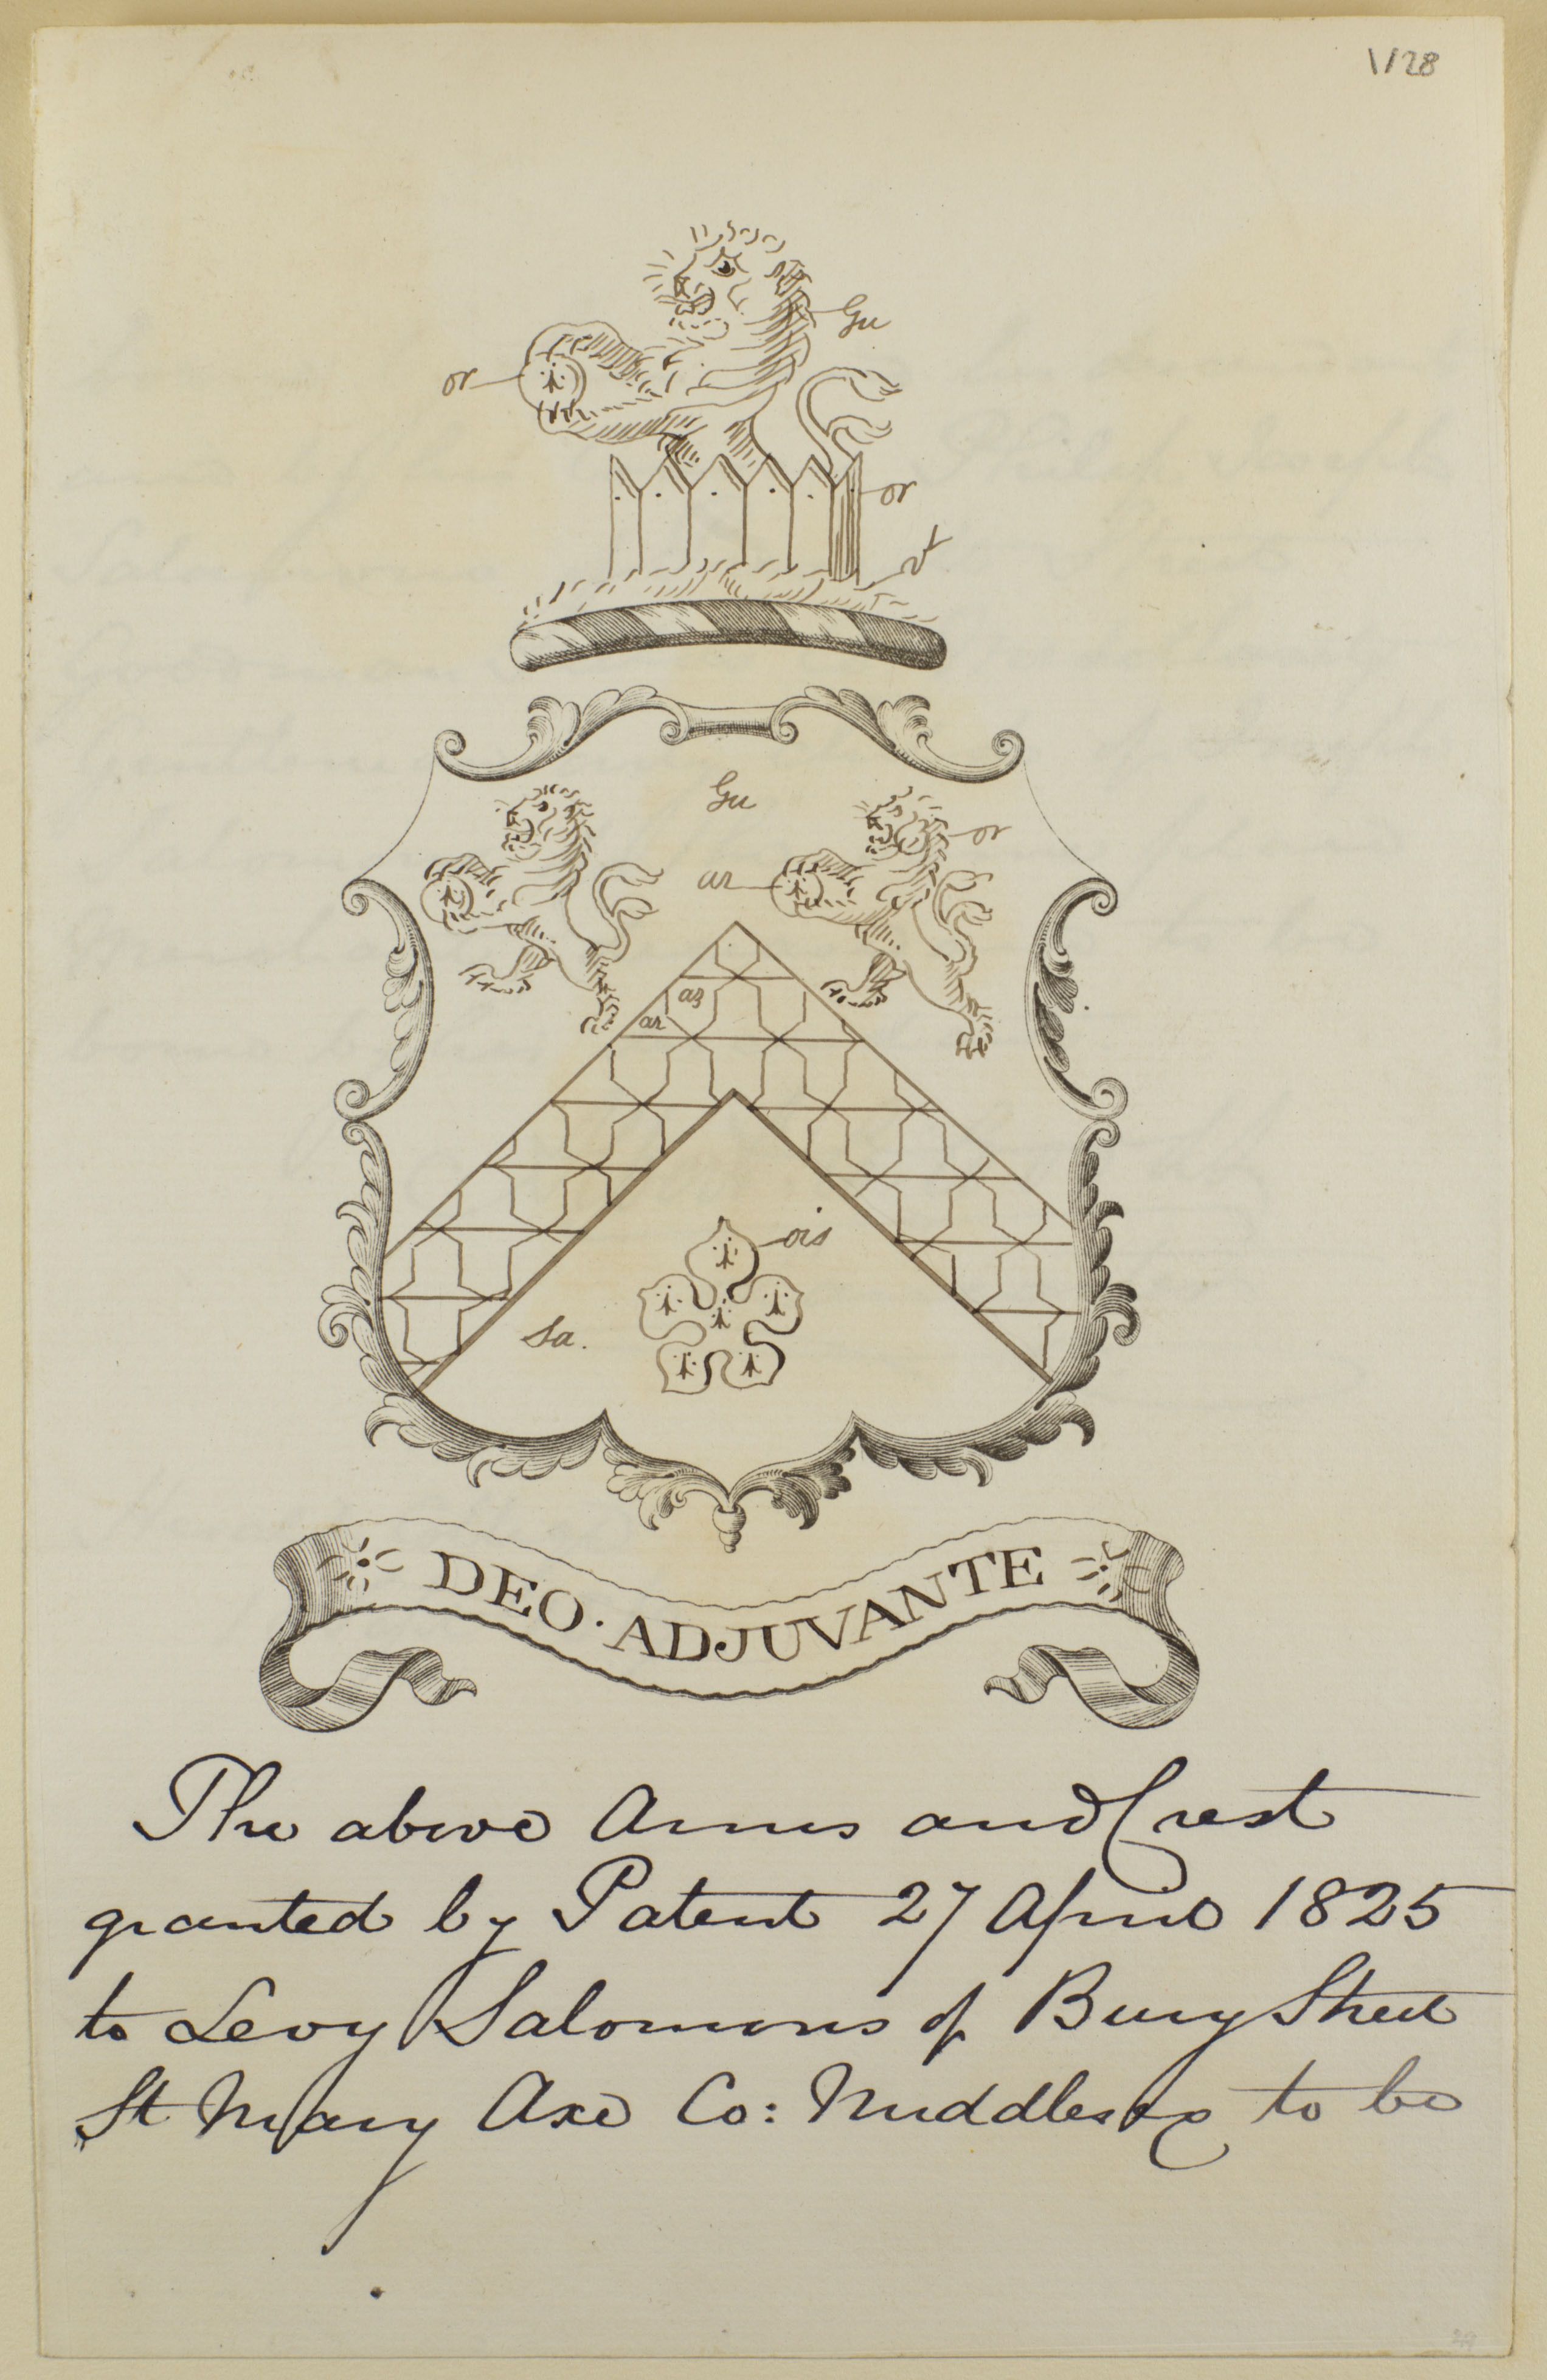 V28
Gu
or
or
vt
Gu
or
ar
az
ar
ois
Sa.
DEO · ADJUVANTE
The above Arms and Crest
granted by Patent 27 April 1825
to Levy Salomons of Bury Street
St Mary Axe Co: Middlesex to be